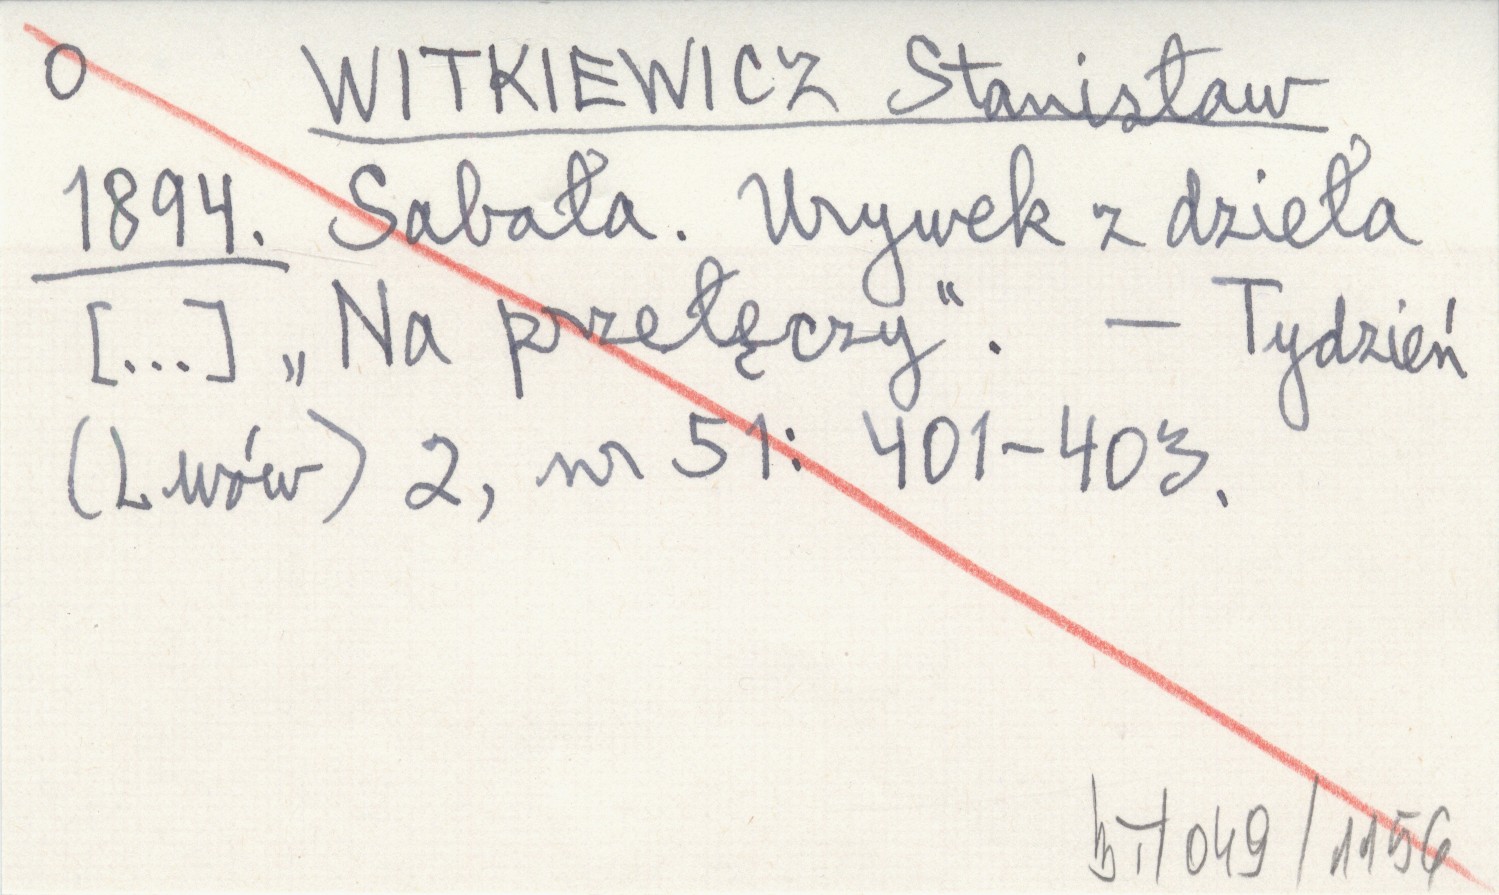 O WITKIEWICZ Stanisław
1894. Sabała. Urywek z dzieła
[...] „Na przełęczy". — Tydzień
(Lwów) 2, nr 51: 401-403.
049/1156